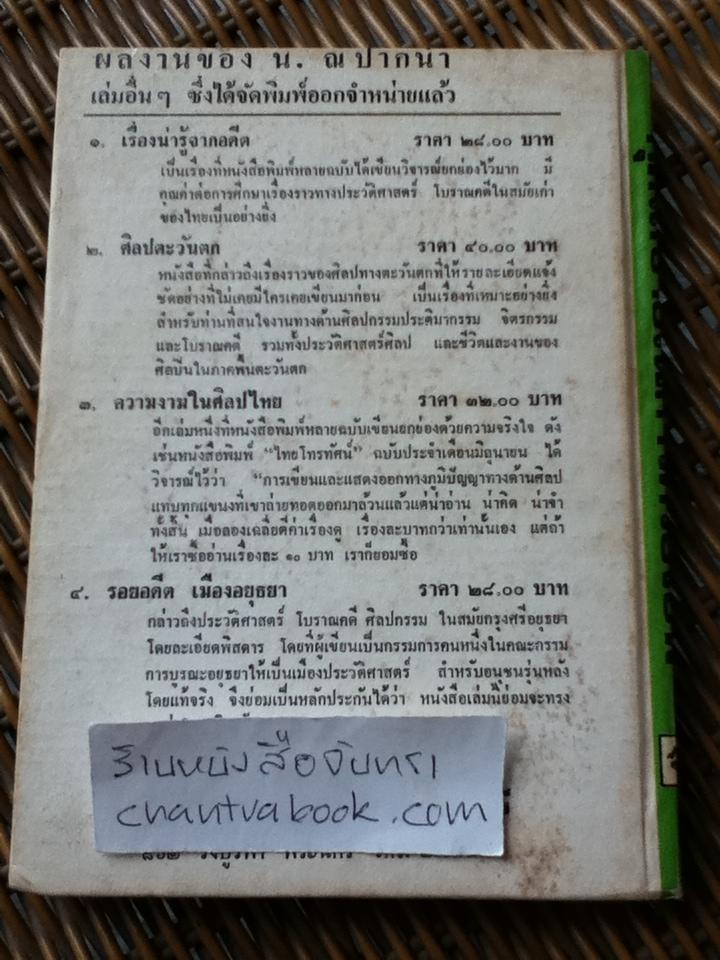 ผลงานของ น. ณ ปากน้ำ
เล่มอื่น ๆ ซึ่งได้จัดพิมพ์ออกจำหน่ายแล้ว
๑. เรื่องน่ารู้จากอดีต ราคา ๒๘.๐๐ บาท
เป็นเรื่องที่หนังสือพิมพ์หลายฉบับได้เขียนวิจารณ์ยกย่องไว้มาก มี
คุณค่าต่อการศึกษาเรื่องราวทางประวัติศาสตร์ โบราณคดีในสมัยเก่า
ของไทยเป็นอย่างยิ่ง
๒. ศิลปตะวันตก ราคา ๔๐.๐๐ บาท
หนังสือที่กล่าวถึงเรื่องราวของศิลปทางตะวันตกที่ให้รายละเอียดแจ้ง
ชัดอย่างที่ไม่เคยมีใครเคยเขียนมาก่อน เป็นเรื่องที่เหมาะอย่างยิ่ง
สำหรับท่านที่สนใจงานทางด้านศิลปกรรมประติมากรรม จิตรกรรม
และโบราณคดี รวมทั้งประวัติศาสตร์ศิลป และชีวิตและงานของ
ศิลปินในภาคพื้นตะวันตก
๓. ความงามในศิลปไทย ราคา ๓๒.๐๐ บาท
อีกเล่มหนึ่งที่หนังสือพิมพ์หลายฉบับเขียนยกย่องด้วยความจริงใจ ดัง
เช่นหนังสือพิมพ์ “ไทยโทรทัศน์” ฉบับประจำเดือนมิถุนายน ได้
วิจารณ์ไว้ว่า “การเขียนและแสดงออกทางภูมิปัญญาทางด้านศิลป
แทบทุกแขนงที่เขาถ่ายทอดออกมาล้วนแล้วแต่น่าอ่าน น่าคิด น่าจำ
ทั้งสิ้น เมื่อลองเฉลี่ยตีค่าเรื่องดู เรื่องละบาทกว่าเท่านั้นเอง แต่ถ้า
ให้เราซื้ออ่านเรื่องละ ๑๐ บาท เราก็ยอมซื้อ
๔. รอยอดีต เมืองอยุธยา ราคา ๒๘.๐๐ บาท
กล่าวถึงประวัติศาสตร์ โบราณคดี ศิลปกรรม ในสมัยกรุงศรีอยุธยา
โดยละเอียดพิสดาร โดยที่ผู้เขียนเป็นกรรมการคนหนึ่งในคณะกรรม
การบูรณะอยุธยาให้เป็นเมืองประวัติศาสตร์ สำหรับอนุชนรุ่นหลัง
โดยแท้จริง จึงย่อมเป็นหลักประกันได้ว่า หนังสือเล่มนี้ย่อมจะทรง
ร้านหนังสือจันทรา
chantrabook.com
๘๖๒ วังบูรพา พระนคร